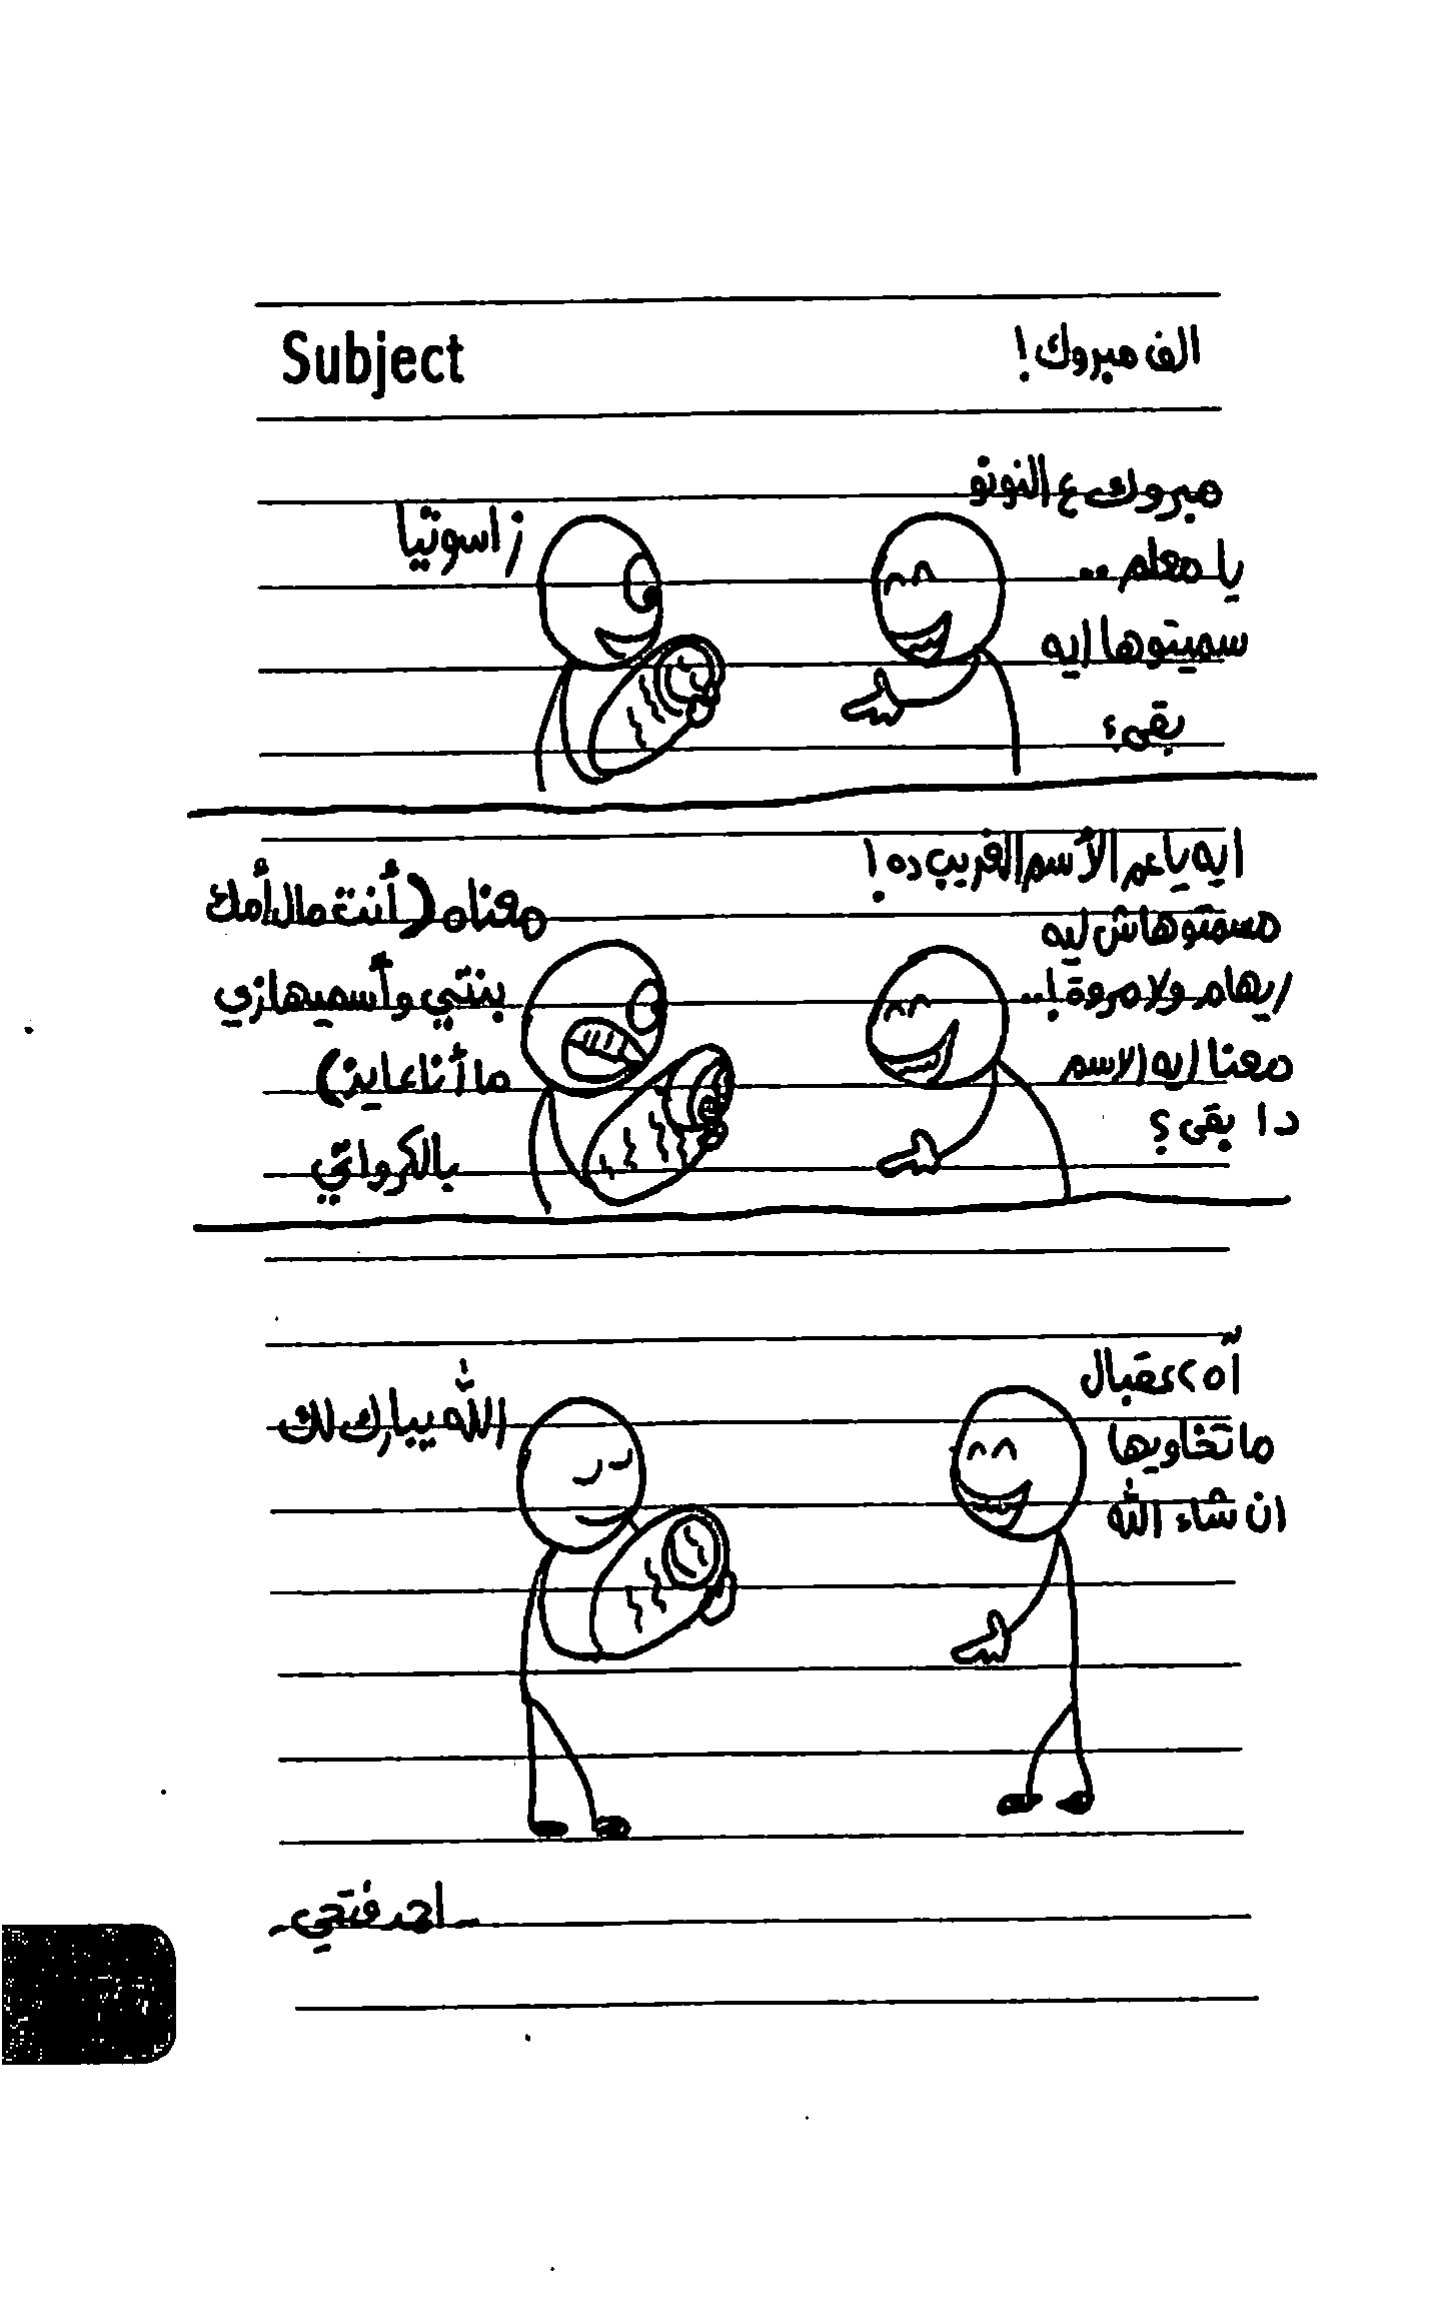 Subject
الف مبروك!
مبروك ع النونو
يا معلم ..
سميتوها ايه
بقى؟
زاسوتيا
ايه يا عم الأسم الغريب ده!
مسمتوهاش ليه
ريهام ولا مروة!..
معنا ايه الاسم
دا بقى؟
معناه (أنت مال أمك
بنتي وأسميها زي
ما أنا عايز)
بالكرواتي
آه، عقبال
ما تخاويها
ان شاء الله
الله يبارك لك
- احمد فتحي -